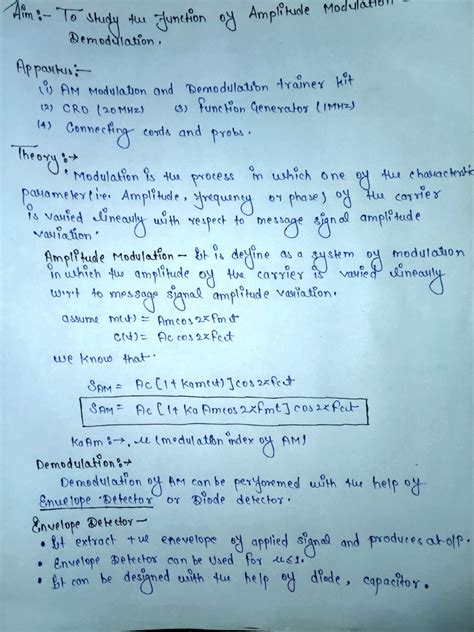 Aim:- To study the function of Amplitude Modulation
Demodulation.
Apparatus:-
(1) AM Modulation and Demodulation trainer kit
(2) CRO (20MHz) (3) Function Generator (1MHz)
(4) Connecting cords and probs.
Theory:→
Modulation is the process in which one of the characteristic
parameter (i.e. Amplitude, frequency or phase) of the carrier
is varied linearly with respect to message signal amplitude
variation.
Amplitude Modulation - It is define as a system of modulation
in which the amplitude of the carrier is varied linearly
w.r.t to message signal amplitude variation.
assume m(t) = Am cos 2π fmt
c(t) = Ac cos 2π fct
we know that.
SAM = Ac [1+ kam(t)] cos 2π fct
SAM = Ac [1+ Ka Am cos 2π fmt] cos 2π fct
KaAm :→ μ (modulation index of AM)
Demodulation:→
Demodulation of AM can be performed with the help of
Envelope Detector or Diode detector.
Envelope Detector -
• It extract +ve enevelop of applied signal and produces at o/p.
• Envelope Detector can be used for μ≤1.
• It can be designed with the help of diode, capacitor.